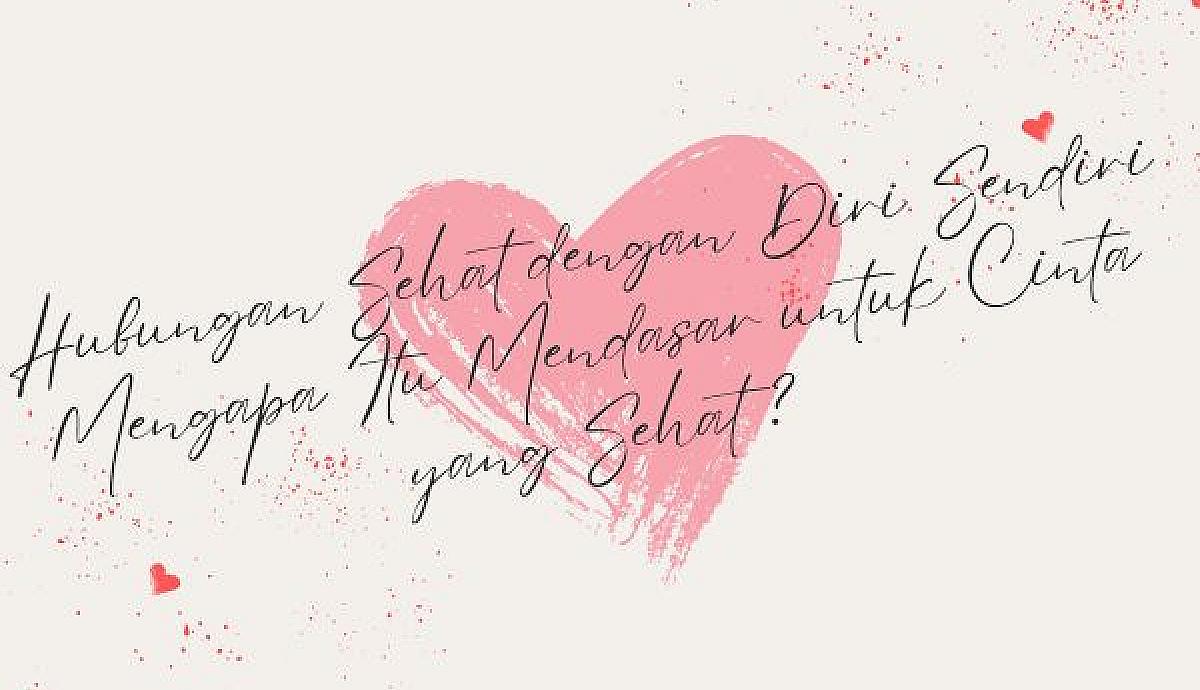 Hubungan Sehat dengan Diri Sendiri
Mengapa Itu Mendasar untuk Cinta
yang Sehat?